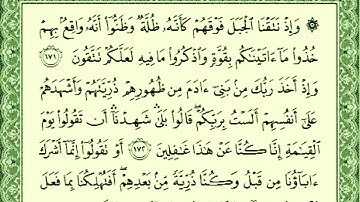 ۞ وَإِذْ نَتَقْنَا الْجَبَلَ فَوْقَهُمْ كَأَنَّهُ ظُلَّةٌ وَظَنُّوا أَنَّهُ وَاقِعٌ بِهِمْ
خُذُوا مَا ءَاتَيْنَاكُم بِقُوَّةٍ وَاذْكُرُوا مَا فِيهِ لَعَلَّكُمْ تَتَّقُونَ ﴿١٧١﴾
وَإِذْ أَخَذَ رَبُّكَ مِن بَنِي ءَادَمَ مِن ظُهُورِهِمْ ذُرِّيَّتَهُمْ وَأَشْهَدَهُمْ
عَلَىٰ أَنفُسِهِمْ أَلَسْتُ بِرَبِّكُمْ قَالُوا بَلَىٰ شَهِدْنَا أَن تَقُولُوا يَوْمَ
الْقِيَامَةِ إِنَّا كُنَّا عَنْ هَٰذَا غَافِلِينَ ﴿١٧٢﴾ أَوْ تَقُولُوا إِنَّمَا أَشْرَكَ
ءَابَاؤُنَا مِن قَبْلُ وَكُنَّا ذُرِّيَّةً مِّن بَعْدِهِمْ أَفَتُهْلِكُنَا بِمَا فَعَلَ